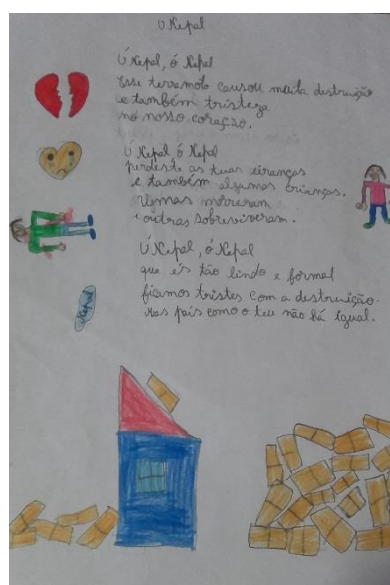 Ó Nepal
Ó Nepal, ó Nepal
Esse terramoto causou muita destruição
e também tristeza
no nosso coração.
Ó Nepal ó Nepal
perdeste as tuas eiranças
e também algumas crianças.
Umas morreram
e outras sobreviveram.
Ó Nepal, ó Nepal
que és tão lindo e formal
ficamos tristes com a destruição.
Mas país como o teu não há igual.
Nepal